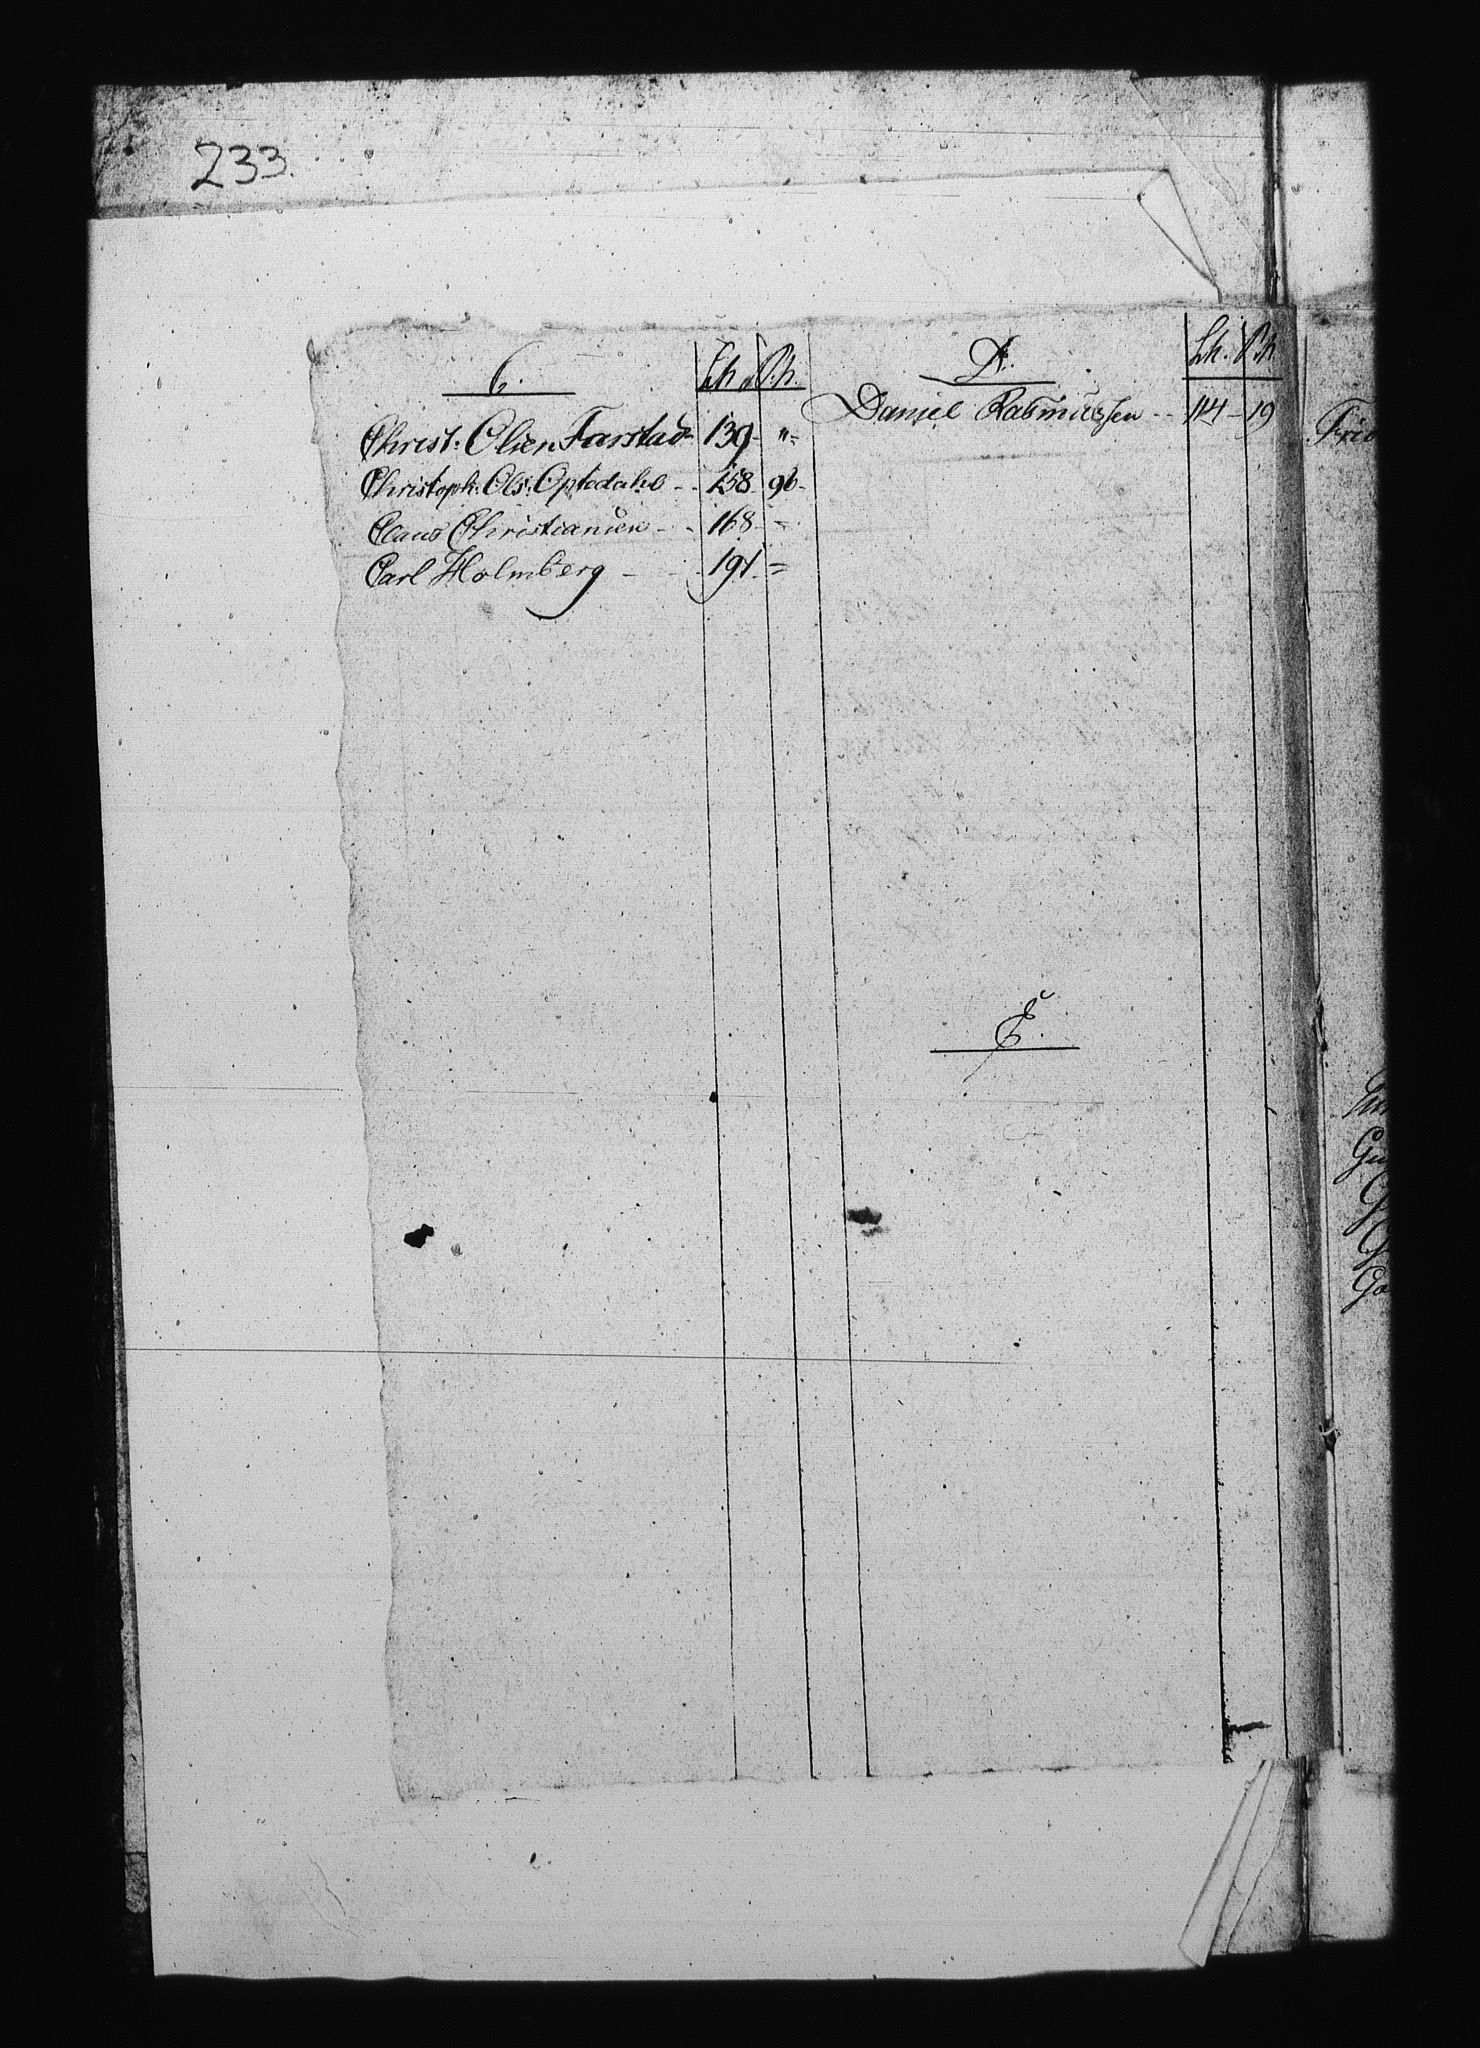 233.
C. Lh. P.h.
Christ: Olsen Farstad 139 - " =
Christoph: Ols: Optedahl - - 158. 96.
Claus Christiansen - - 168. =
Carl Holmberg - - 191. =
D. Lh. P.h.
Daniel Rasmussen - - 114 - 19
E.